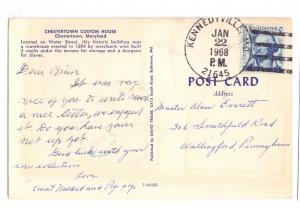 CHESTERTOWN CUSTOM HOUSE
Chestertown, Maryland
Located on Water Street, this historic building was
a warehouse erected in 1694 by merchants who built
2 vaults under the terrace for storage and a dungeon
for slaves.
Dear Alan
It was very
nice of you to write such
a nice letter, we enjoyed
it. Do you have
not up yet.
Good luck with your
collection
love
Aunt Mildred and Pop pop
KENNEDYVILLE, MD
JAN
22
PM
1968
21645
WASHINGTON
POST CARD
Address
Master Alan Everett
306 Smithfield Road
Wallingford, Pennsylvania